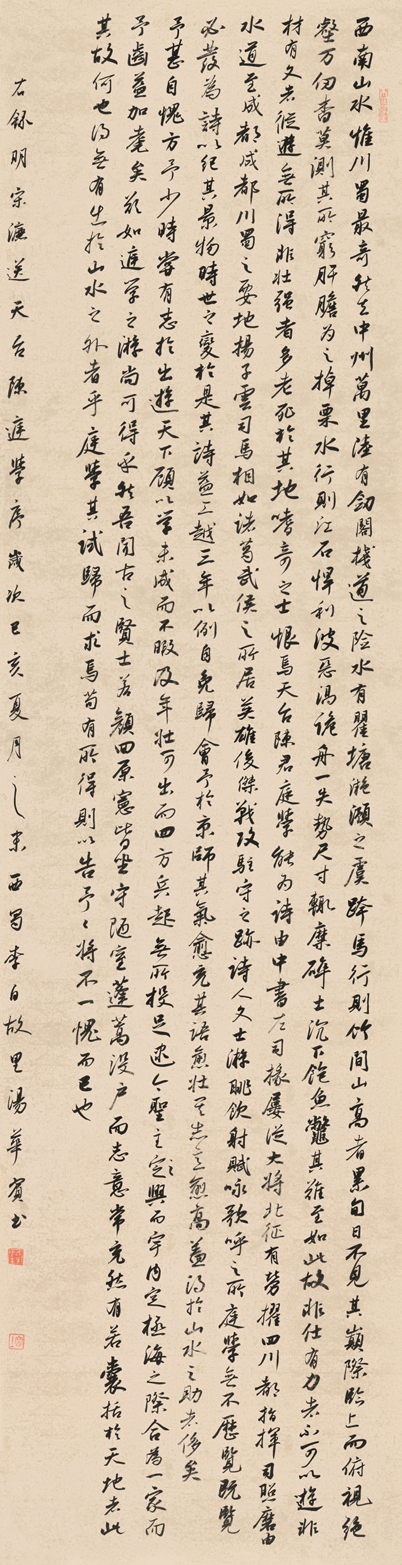 西南山水惟川蜀最奇然去中州萬里陸有劒閣棧道之险水有瞿塘灔澦之虞跨馬行則竹間山高者累旬日不見其巔際臨上而俯視绝
壑万仞杳莫測其所窮肝膽为之掉栗水行則江石悍利波惡渦诡舟一失勢尺寸輙糜碎土沉下飽魚鱉其難至如此故非仕有力者不可以遊非
材有文者縱遊無所得非壮强者多老死於其地嗜奇之士恨焉天台陳君庭學能为詩由中書左司掾屢從大將北征有勞擢四川都指揮司照磨由
水道至成都成都川蜀之要地揚子雲司馬相如诸葛武侯之所居英雄俊傑戰攻駐守之跡詩人文士游眺飲射賦咏歌呼之所庭學無不歷覽既覽
必發為詩以纪其景物時世之變於是其詩益工越三年以例自免歸會予於京師其氣愈充其語愈壮其志意愈高蓋得於山水之助者侈矣
予甚自愧方予少時嘗有志於出遊天下顧以学未成而不暇及年壮可出而四方兵起無所投足逮今聖主定之興而宇内定極海之際合為一家而
予齒益加耄矣欲如庭学之游尚可得乎然吾聞古之賢士若顏回原憲皆坐守陋室蓬蒿没户而志意常充然有若囊括於天地者此
其故何也得無有出於山水之外者乎庭學其試歸而求焉苟有所得則以告予予將不一愧而已也
右録明宋濂送天台陳庭學序歲次己亥夏月之末西蜀李白故里湯華賓书